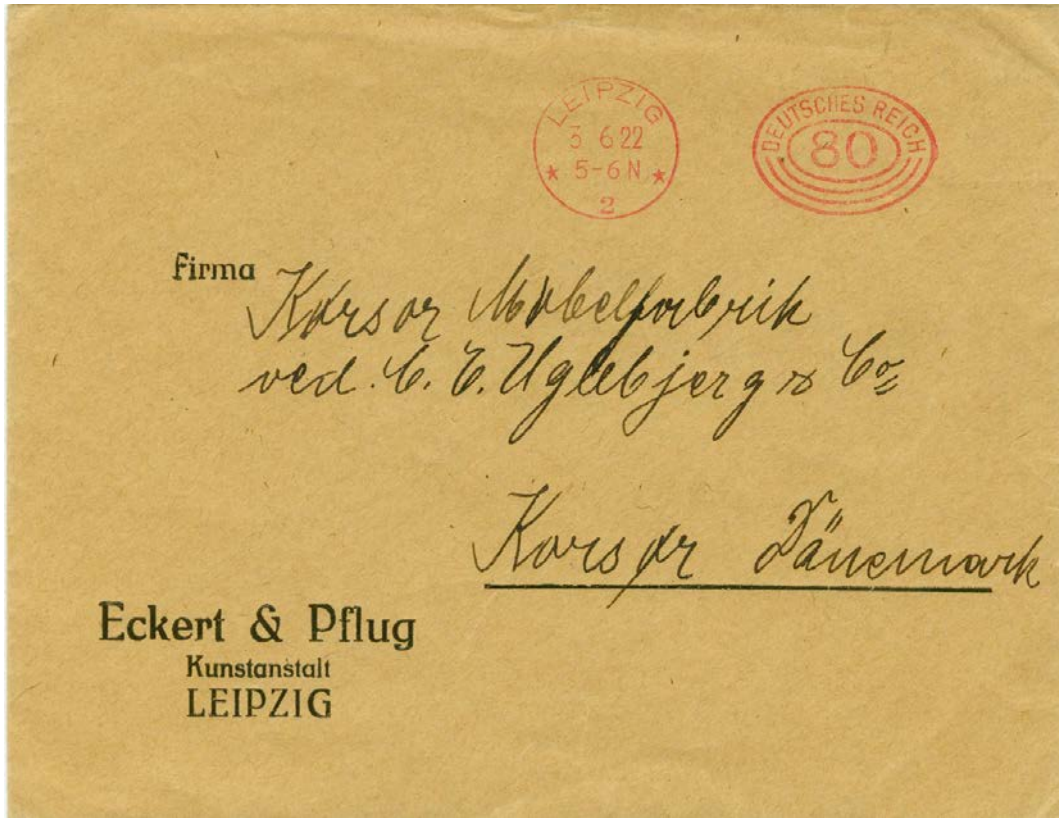 LEIPZIG
3 6 22
★ 5-6 N ★
2
DEUTSCHES REICH
80
Firma Korsør Møbelfabrik
ved. C. E. Uglebjerg & Co
Korsør Dänemark
Eckert & Pflug
Kunstanstalt
LEIPZIG